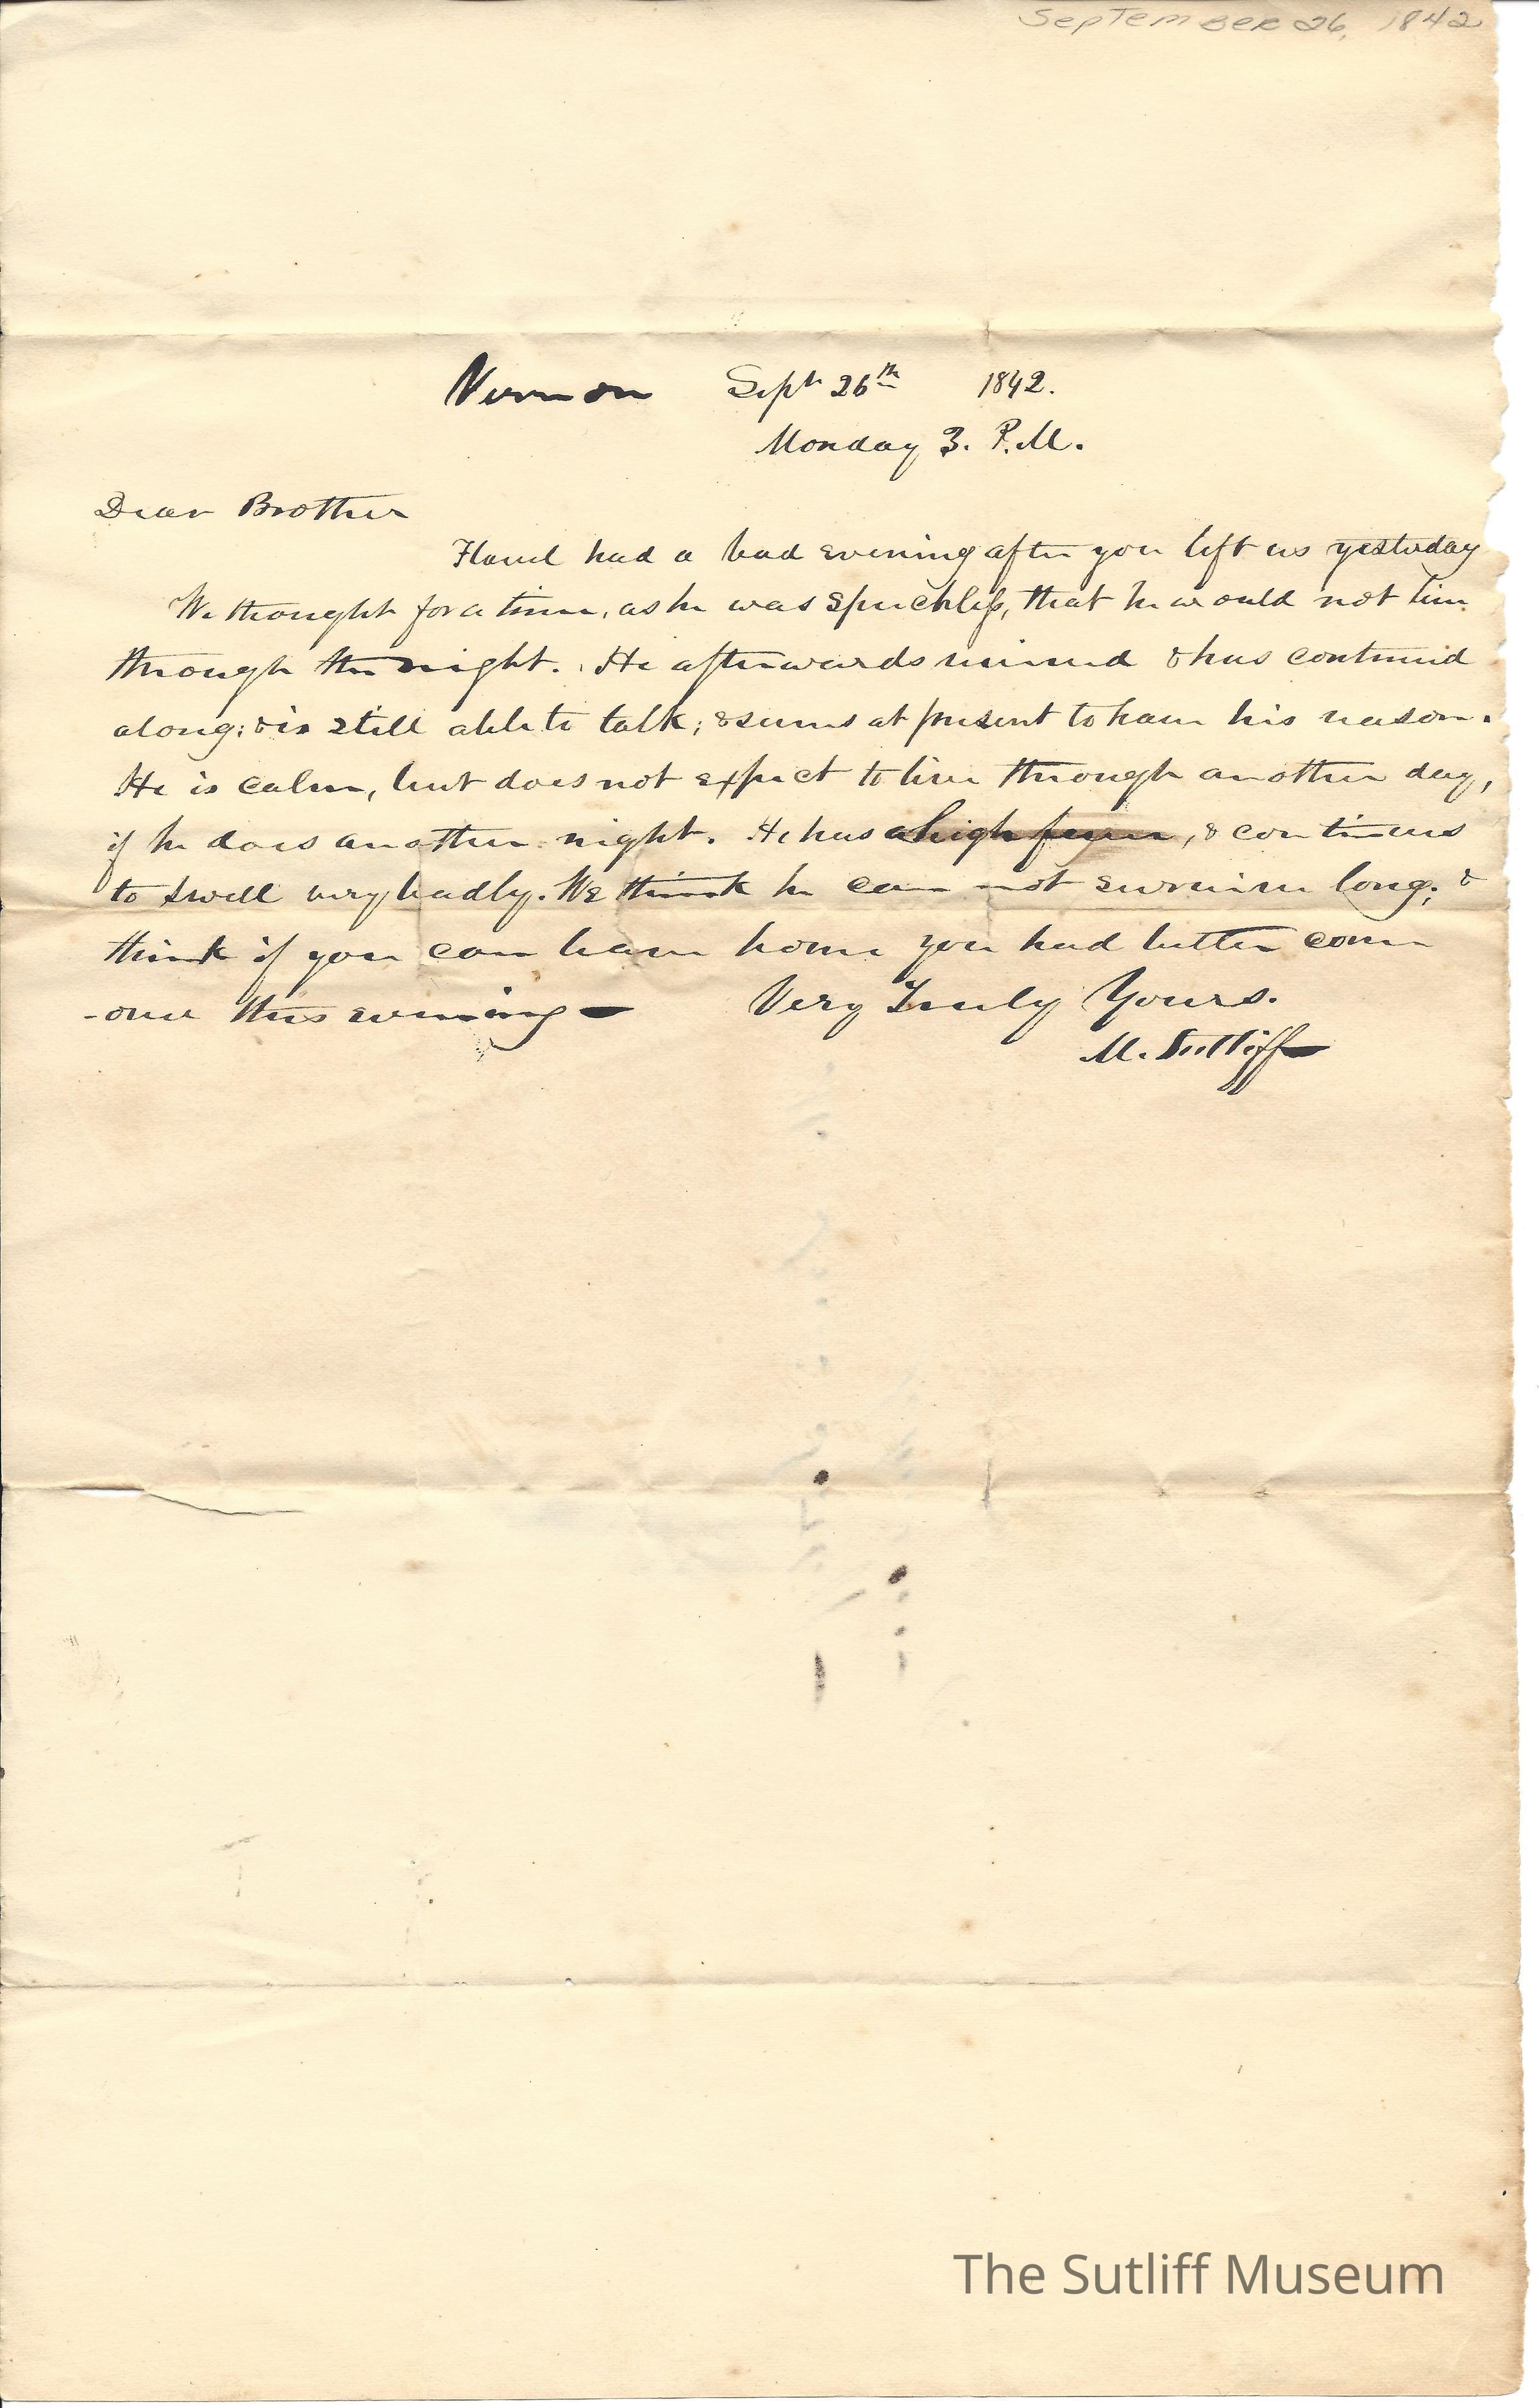 September 26, 1842
Vernon Sept 26th 1842.
Monday 3. P.M.
Dear Brother
Flavel had a bad evening after you left us yesterday
We thought for a time, as he was speechless, that he would not live
through the night. He afterwards revived & has continued
along; & is still able to talk; & seems at present to have his reason.
He is calm, but does not expect to live through another day,
if he does another night. He has a high fever, & continues
to swell very badly. We think he can not survive long; &
think if you can leave home you had better come
-over this evening —
Very Truly Yours.
M. Sutliff
The Sutliff Museum